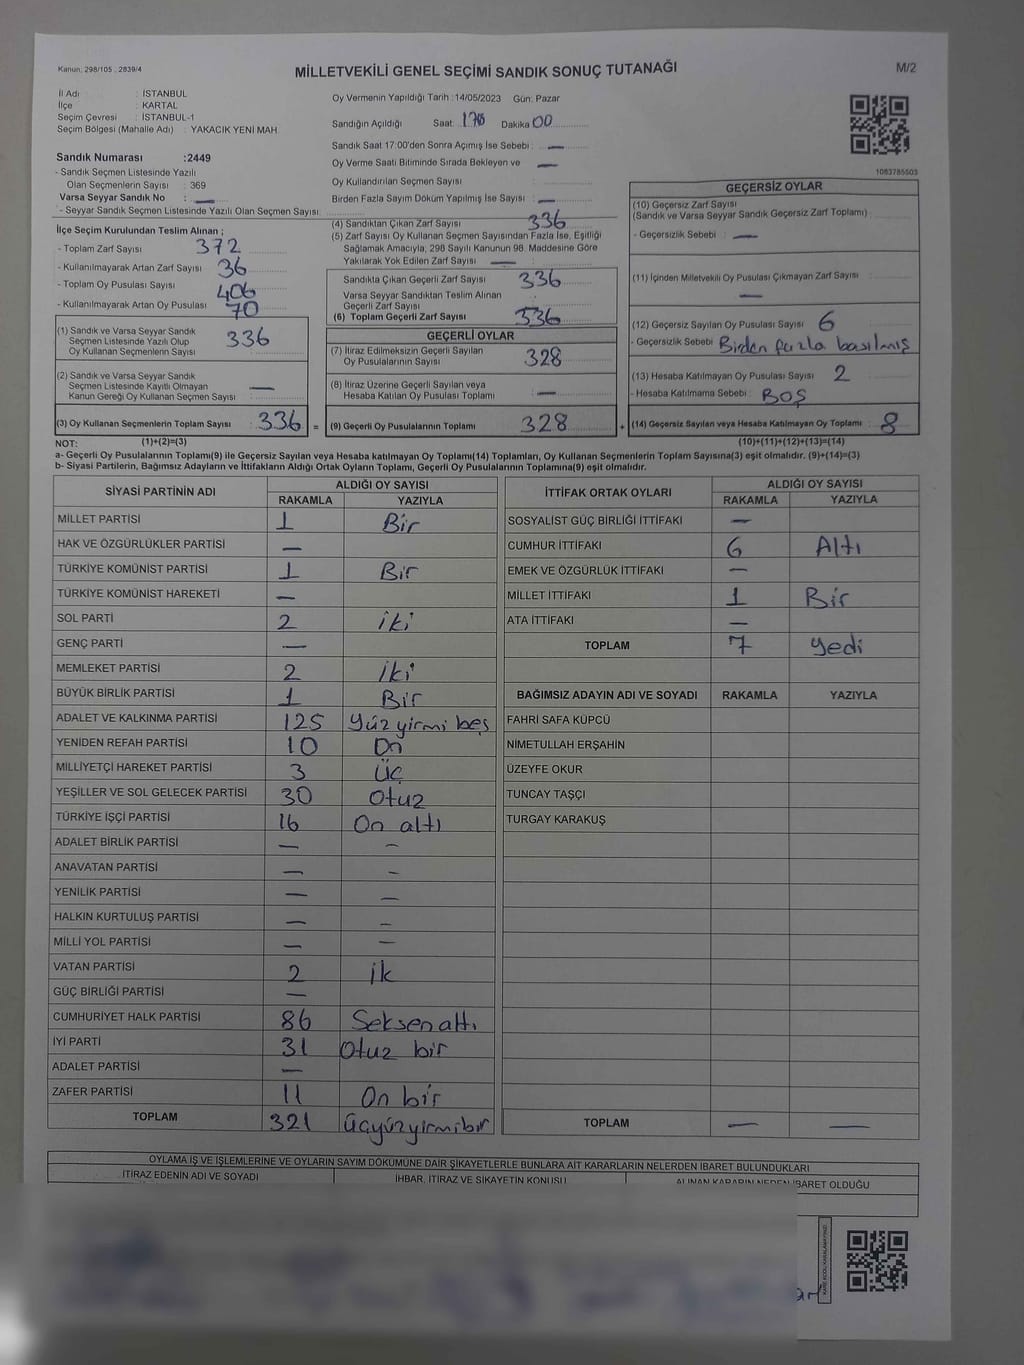 Kanun: 298/105 , 2839/4
MİLLETVEKİLİ GENEL SEÇİMİ SANDIK SONUÇ TUTANAĞI
M/2
İl Adı : İSTANBUL
İlçe : KARTAL
Seçim Çevresi : İSTANBUL-1
Seçim Bölgesi (Mahalle Adı) : YAKACIK YENİ MAH.
Sandık Numarası :2449
- Sandık Seçmen Listesinde Yazılı
Olan Seçmenlerin Sayısı : 369
Varsa Seyyar Sandık No : —
- Seyyar Sandık Seçmen Listesinde Yazılı Olan Seçmen Sayısı:
İlçe Seçim Kurulundan Teslim Alınan ;
- Toplam Zarf Sayısı 372
- Kullanılmayarak Artan Zarf Sayısı 36
- Toplam Oy Pusulası Sayısı 406
- Kullanılmayarak Artan Oy Pusulası 70
(1) Sandık ve Varsa Seyyar Sandık
Seçmen Listesinde Yazılı Olup 336
Oy Kullanan Seçmenlerin Sayısı
(2) Sandık ve Varsa Seyyar Sandık
Seçmen Listesinde Kayıtlı Olmayan —
Kanun Gereği Oy Kullanan Seçmen Sayısı :
(3) Oy Kullanan Seçmenlerin Toplam Sayısı 336 =
Oy Vermenin Yapıldığı Tarih :14/05/2023 Gün: Pazar
Sandığın Açıldığı Saat: Dakika 00
Sandık Saat 17:00'den Sonra Açımış İse Sebebi : —
Oy Verme Saati Bitiminde Sırada Bekleyen ve —
Oy Kullandırılan Seçmen Sayısı :
Birden Fazla Sayım Döküm Yapılmış İse Sayısı : —
(4) Sandıktan Çıkan Zarf Sayısı 336
(5) Zarf Sayısı Oy Kullanan Seçmen Sayısından Fazla İse, Eşitliği
Sağlamak Amacıyla, 298 Sayılı Kanunun 98. Maddesine Göre
Yakılarak Yok Edilen Zarf Sayısı —
Sandıkta Çıkan Geçerli Zarf Sayısı 336
Varsa Seyyar Sandıktan Teslim Alınan
Geçerli Zarf Sayısı
(6) Toplam Geçerli Zarf Sayısı 336
GEÇERLİ OYLAR
(7) İtiraz Edilmeksizin Geçerli Sayılan
Oy Pusulalarının Sayısı 328
(8) İtiraz Üzerine Geçerli Sayılan veya
Hesaba Katılan Oy Pusulası Toplamı —
(9) Geçerli Oy Pusulalarının Toplamı 328 +
1083785503
GEÇERSİZ OYLAR
(10) Geçersiz Zarf Sayısı
(Sandık ve Varsa Seyyar Sandık Geçersiz Zarf Toplamı)
- Geçersizlik Sebebi : —
(11) İçinden Milletvekili Oy Pusulası Çıkmayan Zarf Sayısı
—
(12) Geçersiz Sayılan Oy Pusulası Sayısı 6
- Geçersizlik Sebebi Birden fazla basılmış
(13) Hesaba Katılmayan Oy Pusulası Sayısı 2
- Hesaba Katılmama Sebebi : BOŞ
(14) Geçersiz Sayılan veya Hesaba Katılmayan Oy Toplamı 8
NOT: (1)+(2)=(3) (10)+(11)+(12)+(13)=(14)
a- Geçerli Oy Pusulalarının Toplamı(9) ile Geçersiz Sayılan veya Hesaba katılmayan Oy Toplamı(14) Toplamları, Oy Kullanan Seçmenlerin Toplam Sayısına(3) eşit olmalıdır. (9)+(14)=(3)
b- Siyasi Partilerin, Bağımsız Adayların ve İttifakların Aldığı Ortak Oyların Toplamı, Geçerli Oy Pusulalarının Toplamına(9) eşit olmalıdır.
SİYASİ PARTİNİN ADI ALDIĞI OY SAYISI
RAKAMLA YAZIYLA
MİLLET PARTİSİ 1 Bir
HAK VE ÖZGÜRLÜKLER PARTİSİ —
TÜRKİYE KOMÜNİST PARTİSİ 1 Bir
TÜRKİYE KOMÜNİST HAREKETİ —
SOL PARTİ 2 iki
GENÇ PARTİ —
MEMLEKET PARTİSİ 2 İki
BÜYÜK BİRLİK PARTİSİ 1 Bir
ADALET VE KALKINMA PARTİSİ 125 Yüzyirmi beş
YENİDEN REFAH PARTİSİ 10 On
MİLLİYETÇİ HAREKET PARTİSİ 3 Üç
YEŞİLLER VE SOL GELECEK PARTİSİ 30 Otuz
TÜRKİYE İŞÇİ PARTİSİ 16 On altı
ADALET BİRLİK PARTİSİ — —
ANAVATAN PARTİSİ — —
YENİLİK PARTİSİ — —
HALKIN KURTULUŞ PARTİSİ — —
MİLLİ YOL PARTİSİ — —
VATAN PARTİSİ 2 ik
GÜÇ BİRLİĞİ PARTİSİ —
CUMHURİYET HALK PARTİSİ 86 Seksen altı
İYİ PARTİ 31 Otuz bir
ADALET PARTİSİ —
ZAFER PARTİSİ 11 On bir
TOPLAM 321 Üçyüzyirmibir
İTTİFAK ORTAK OYLARI ALDIĞI OY SAYISI
RAKAMLA YAZIYLA
SOSYALİST GÜÇ BİRLİĞİ İTTİFAKI —
CUMHUR İTTİFAKI 6 Altı
EMEK VE ÖZGÜRLÜK İTTİFAKI —
MİLLET İTTİFAKI 1 Bir
ATA İTTİFAKI —
TOPLAM 7 yedi
BAĞIMSIZ ADAYIN ADI VE SOYADI RAKAMLA YAZIYLA
FAHRİ SAFA KÜPCÜ
NİMETULLAH ERŞAHİN
ÜZEYFE OKUR
TUNCAY TAŞÇI
TURGAY KARAKUŞ
TOPLAM — —
OYLAMA İŞ VE İŞLEMLERİNE VE OYLARIN SAYIM DÖKÜMÜNE DAİR ŞİKAYETLERLE BUNLARA AİT KARARLARIN NELERDEN İBARET BULUNDUKLARI
İTİRAZ EDENİN ADI VE SOYADI İHBAR, İTİRAZ VE ŞİKAYETİN KONUSU ALINAN KARARIN NEDEN İBARET OLDUĞU